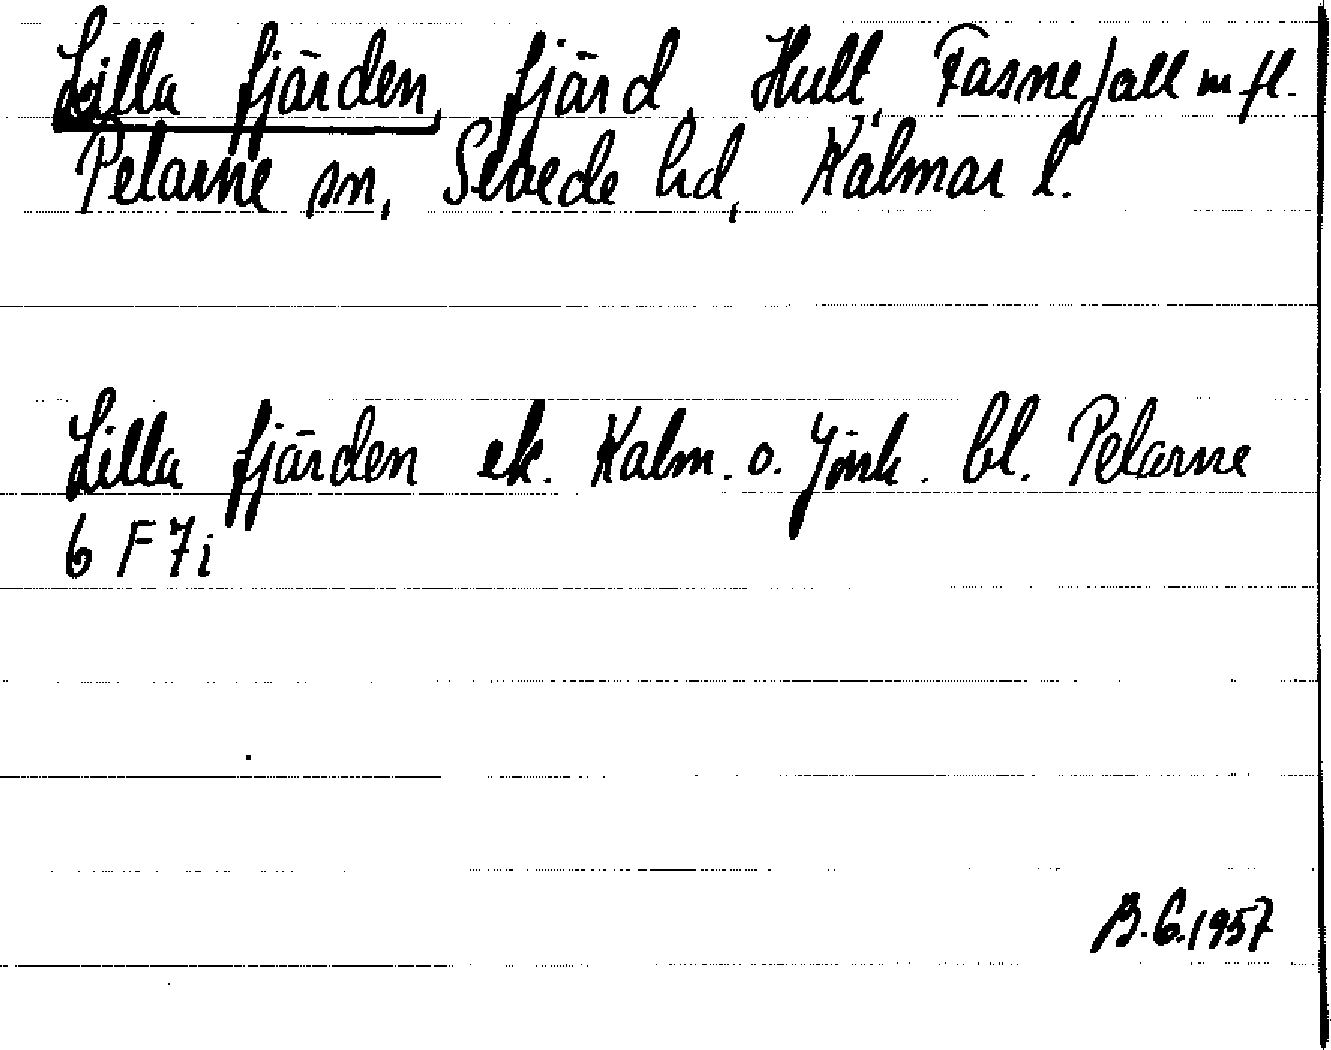 Lilla fjärden, fjärd, Hult, Fasnefall m fl.
Pelarne sn, Sevede hd, Kalmar l.
Lilla fjärden ek. Kalm. o. Jönk. bl. Pelarne
6 F 7i
B.G.1957